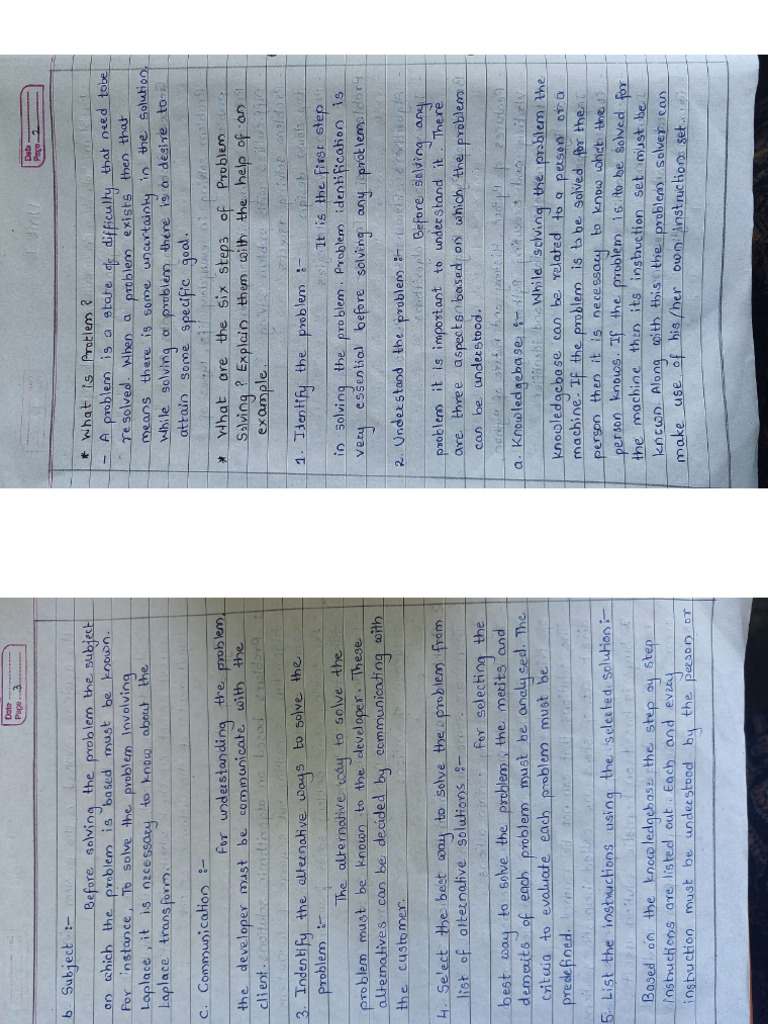 Date
Page 2
* What is Problem ?
- A problem is a state of difficulty that need tobe
resolved when a problem exists then that
means there is some uncartainty in the solution,
While solving a problem, there is a desire to
attain some specific goal.
* What are the six steps of Problem
Solving ? Explain them with the help of an
example.
1. Identify the problem :-
It is the first step
in solving the problem. Problem identification is
very essential before solving any problem.
2. Understand the problem :-
Before solving any
problem it is important to understand it There
are three aspects based on which the problem
can be understood.
a. Knowledgebase :-
While solving the problem the
knowledgebase can be related to a person or a
machine. If the problem is to be solved for the
person then it is necessary to know what the
person knows. If the problem is to be solved for
the machine then its instruction set must be
known Along with this the problem solver can
make use of his/her own instruction set.
Date
Page 3
b Subject :-
Before solving the problem the subject
on which the problem is based must be known.
For instance, To solve the problem involving
Laplace, it is necessary to know about the
Laplace transform.
c. Communication :-
For understanding the problem,
the developer must be communicate with the
client.
3. Indentify the alternative ways to solve the
problem :-
The alternative way to solve the
problem must be known to the developer. These
alternatives can be decided by communicating with
the customer.
4. Select the best way to solve the problem from
list of alternative solutions :-
For selecting the
best way to solve the problem, the merits and
demerits of each problem must be analysed. The
criteria to evaluate each problem must be
predefined.
5. List the instructions using the selected solution:-
Based on the knowledgebase the step by step
instructions are listed out. Each and every
instruction must be understood by the person or